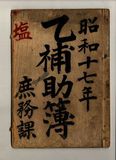 昭和十七年
乙補助簿
庶務課
塩